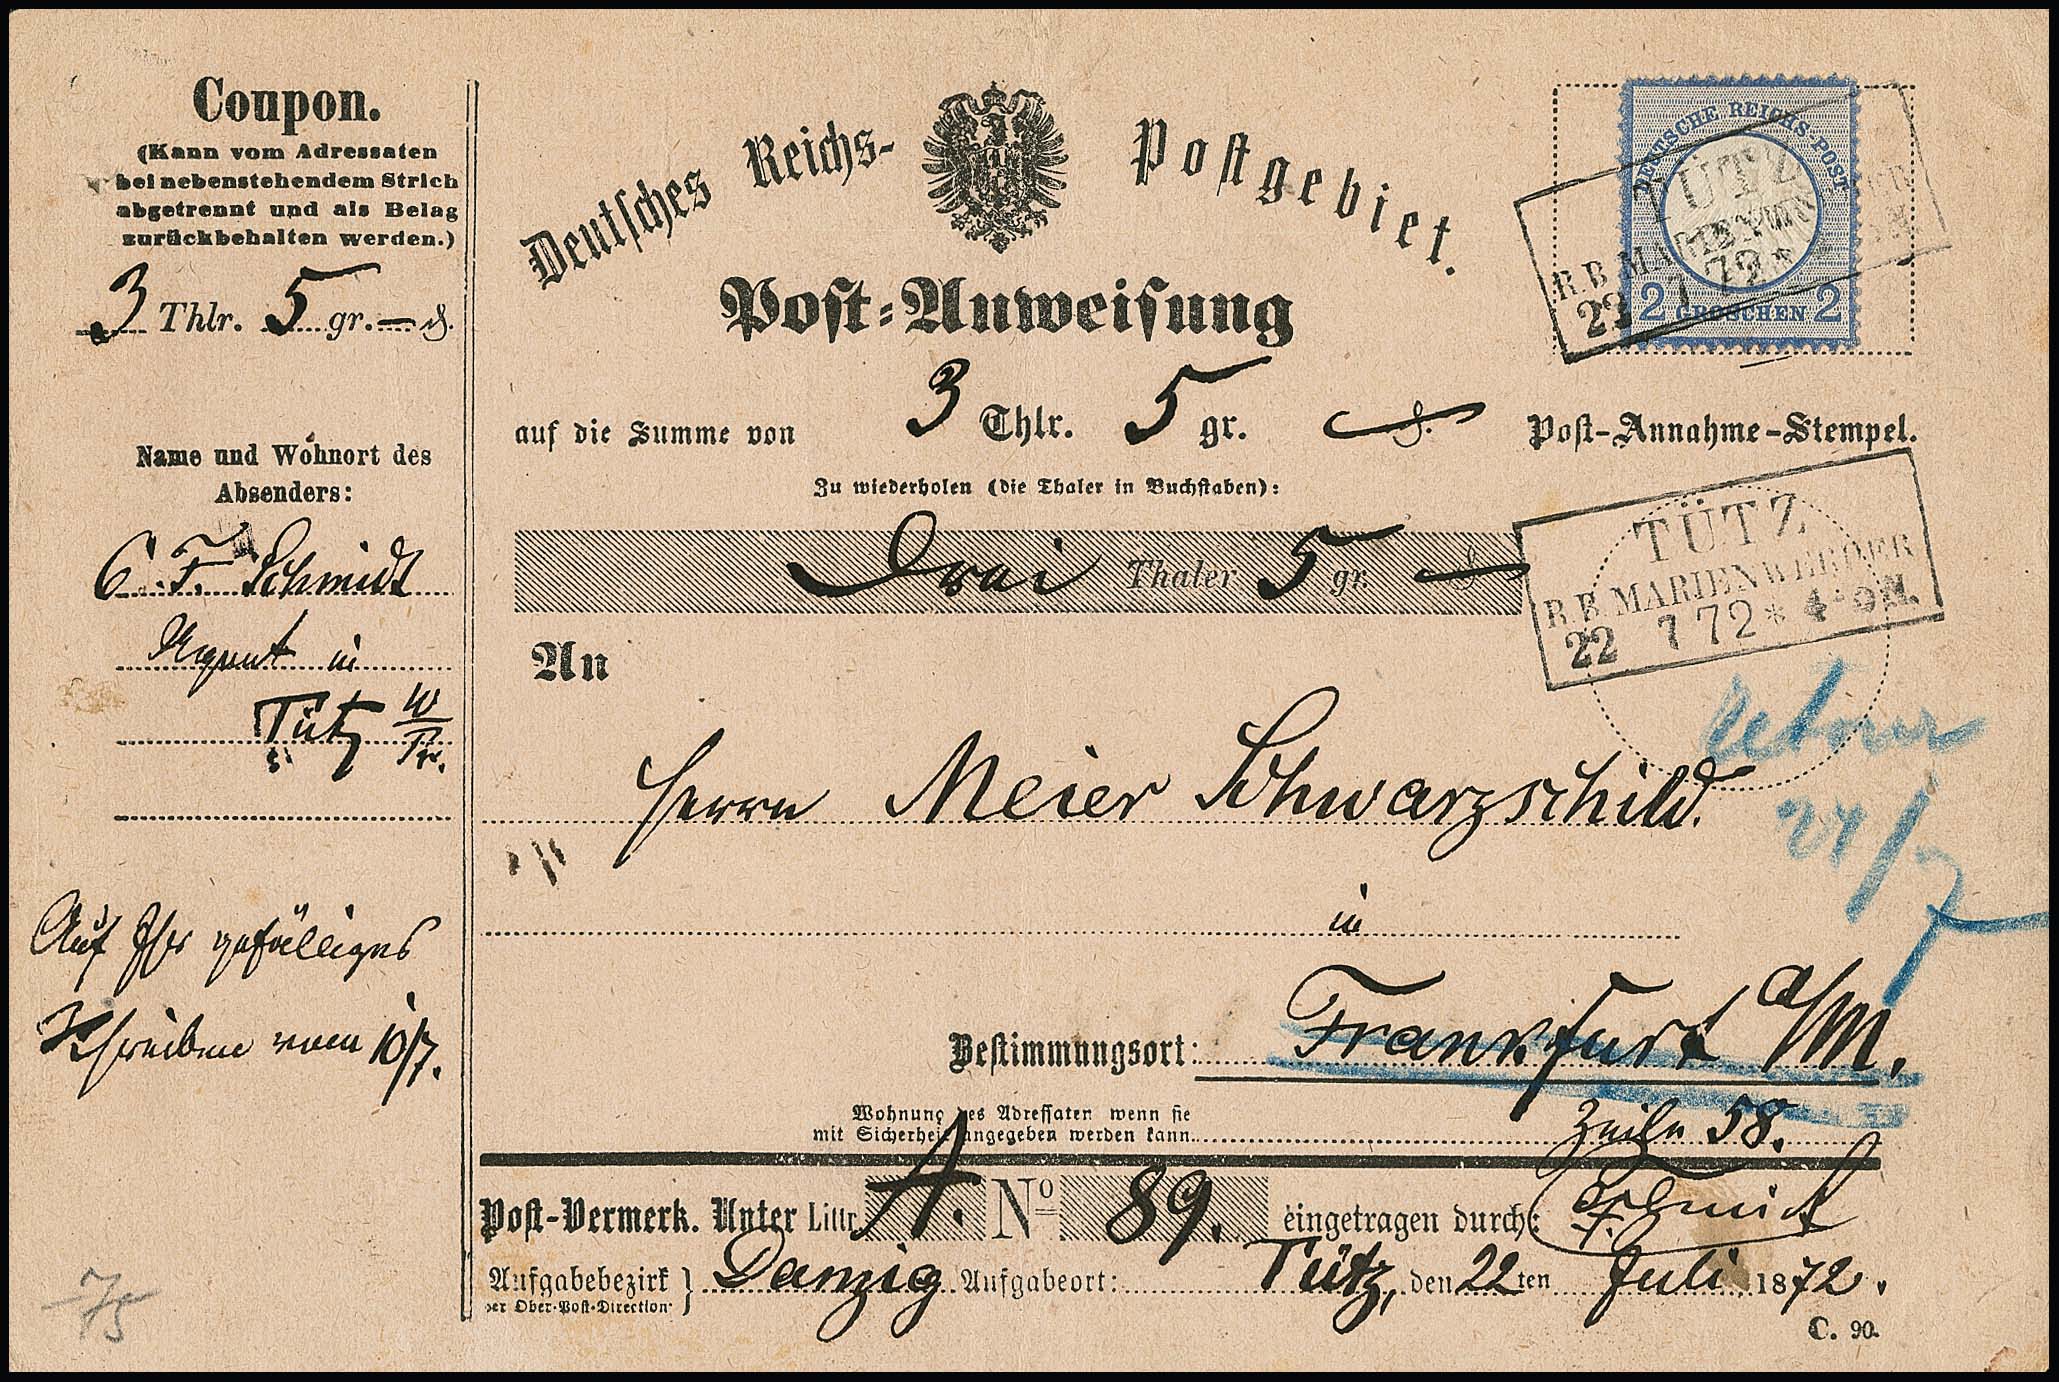 Coupon.
(Kann vom Adressaten
bei nebenstehendem Strich
abgetrennt und als Belag
zurückbehalten werden.)
3 Thlr. 5 gr. — ₰.
Name und Wohnort des
Absenders:
C. F. Schmidt
Agent in
Tütz W/Pr.
Auf Ihr gefälliges
Schreiben vom 10/7.
75
Deutsches Reichs-Postgebiet.
Post-Anweisung
auf die Summe von 3 Thlr. 5 gr. — ₰.
Zu wiederholen (die Thaler in Buchstaben):
Drei Thaler 5 gr. — ₰
An
Herrn Meier Schwarzschild.
in
Bestimmungsort: Frankfurt a/M.
Wohnung des Adressaten wenn sie
mit Sicherheit angegeben werden kann. Zeile 58.
Post-Vermerk. Unter Littr. A. No 89. eingetragen durch: Schmidt
Aufgabebezirk } Danzig Aufgabeort: Tütz, den 22ten Juli 1872.
der Ober-Post-Direction
C. 90.
DEUTSCHE REICHS-POST
2 GROSCHEN 2
TÜTZ
R.B. MARIENWERDER
22 7 72 *
Post-Annahme-Stempel.
TÜTZ
R.B. MARIENWERDER
22 7 72 * 4-5 N.
Retour
24/7